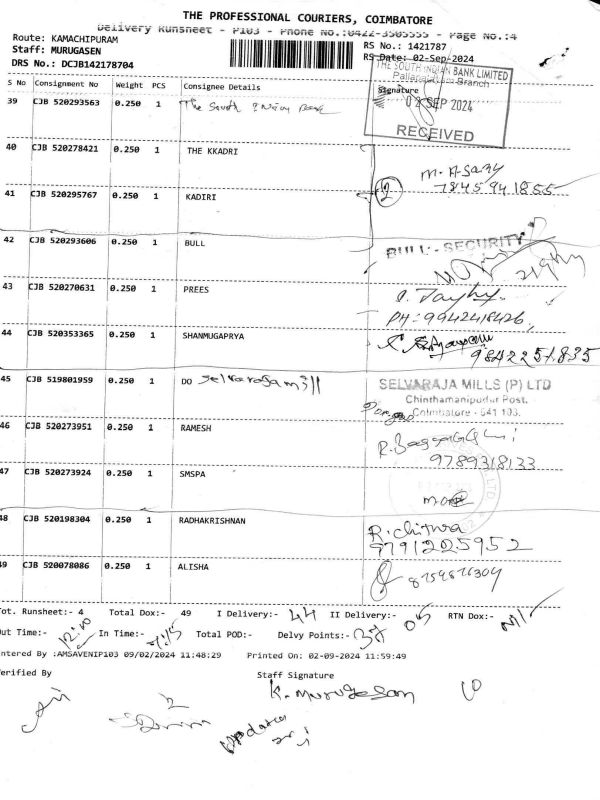 THE PROFESSIONAL COURIERS, COIMBATORE
Delivery Runsheet - P103 - Phone No.:0422-3505555 - Page No.:4
Route: KAMACHIPURAM
RS No.: 1421787
Staff: MURUGASEN
RS Date: 02-Sep-2024
DRS No.: DCJB142178704
S No Consignment No Weight PCS Consignee Details Signature
THE SOUTH INDIAN BANK LIMITED
Branch
02 SEP 2024
RECEIVED
39 CJB 520293563 0.250 1 The South Bank
40 CJB 520278421 0.250 1 THE KKADRI
7845941855
41 CJB 520295767 0.250 1 KADIRI
2
42 CJB 520293606 0.250 1 BULL
BULL - SECURITY
43 CJB 520270631 0.250 1 PREES
PH: 9942418426
44 CJB 520353365 0.250 1 SHANMUGAPRYA
9842251835
45 CJB 519801959 0.250 1 DO Selvaragamill
SELVARAJA MILLS (P) LTD
Chinthamanipudur Post.
Coimbatore - 641 103.
46 CJB 520273951 0.250 1 RAMESH
9789318133
47 CJB 520273924 0.250 1 SMSPA
48 CJB 520198304 0.250 1 RADHAKRISHNAN
R. Chitra
9791225952
49 CJB 520078086 0.250 1 ALISHA
Tot. Runsheet:- 4 Total Dox:- 49 I Delivery:- 44 II Delivery:- 05 RTN Dox:- Nil
Out Time:- In Time:- Total POD:- Delvy Points:- 37
Entered By :AMSAVENIP103 09/02/2024 11:48:29 Printed On: 02-09-2024 11:59:49
Verified By Staff Signature
K. Murugesan